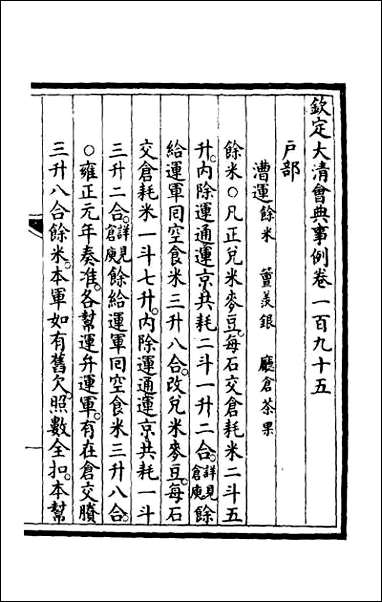 欽定大清會典事例卷一百九十五
戶部
漕運餘米 羨銀 廳倉茶果
餘米○凡正兌米麥豆每石交倉耗米二斗五
升內除運通運京共耗二斗一升二合詳見倉庾餘
給運軍同空食米三升八合改兌米麥豆每石
交倉耗米一斗七升內除運通運京共耗一斗
三升二合詳見倉庾餘給運軍同空食米三升八合
○雍正元年奏准各幫運弁運軍有在倉交賸
三升八合餘米本軍如有舊欠照數全扣本幫